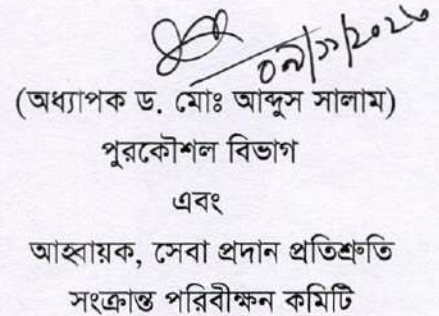 (অধ্যাপক ড. মোঃ আব্দুস সালাম)
পুরকৌশল বিভাগ
এবং
আহ্বায়ক, সেবা প্রদান প্রতিশ্রুতি
সংক্রান্ত পরিবীক্ষন কমিটি